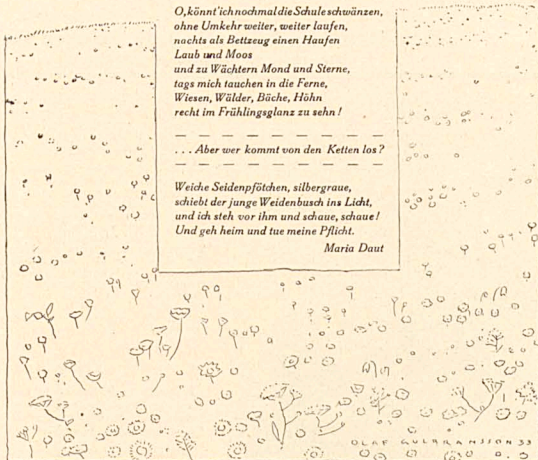 O, könnt' ich nochmal die Schule schwänzen,
ohne Umkehr weiter, weiter laufen,
nachts als Bettzeug einen Haufen
Laub und Moos
und zu Wächtern Mond und Sterne,
tags mich tauchen in die Ferne,
Wiesen, Wälder, Bäche, Höhn
recht im Frühlingsglanz zu sehn!
. . . Aber wer kommt von den Ketten los?
Weiche Seidenpfötchen, silbergraue,
schiebt der junge Weidenbusch ins Licht,
und ich steh vor ihm und schaue, schaue!
Und geh heim und tue meine Pflicht.
Maria Daut
OLAF GULBRANSSON 33